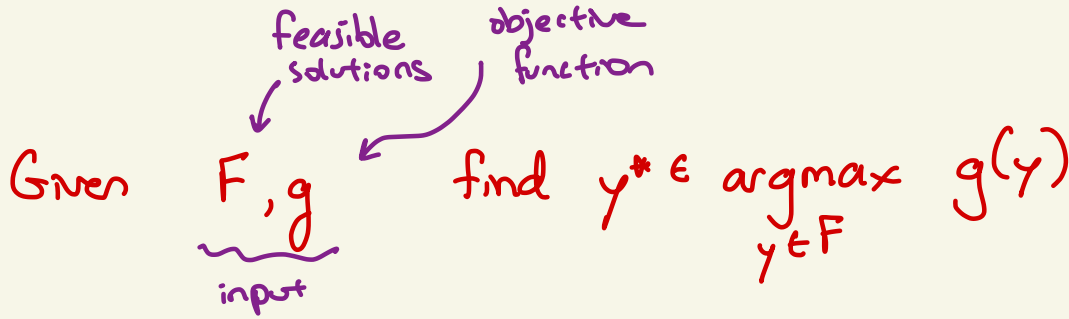 feasible
solutions
objective
function
Given F, g find y* ∈ argmax g(y)
y ∈ F
input